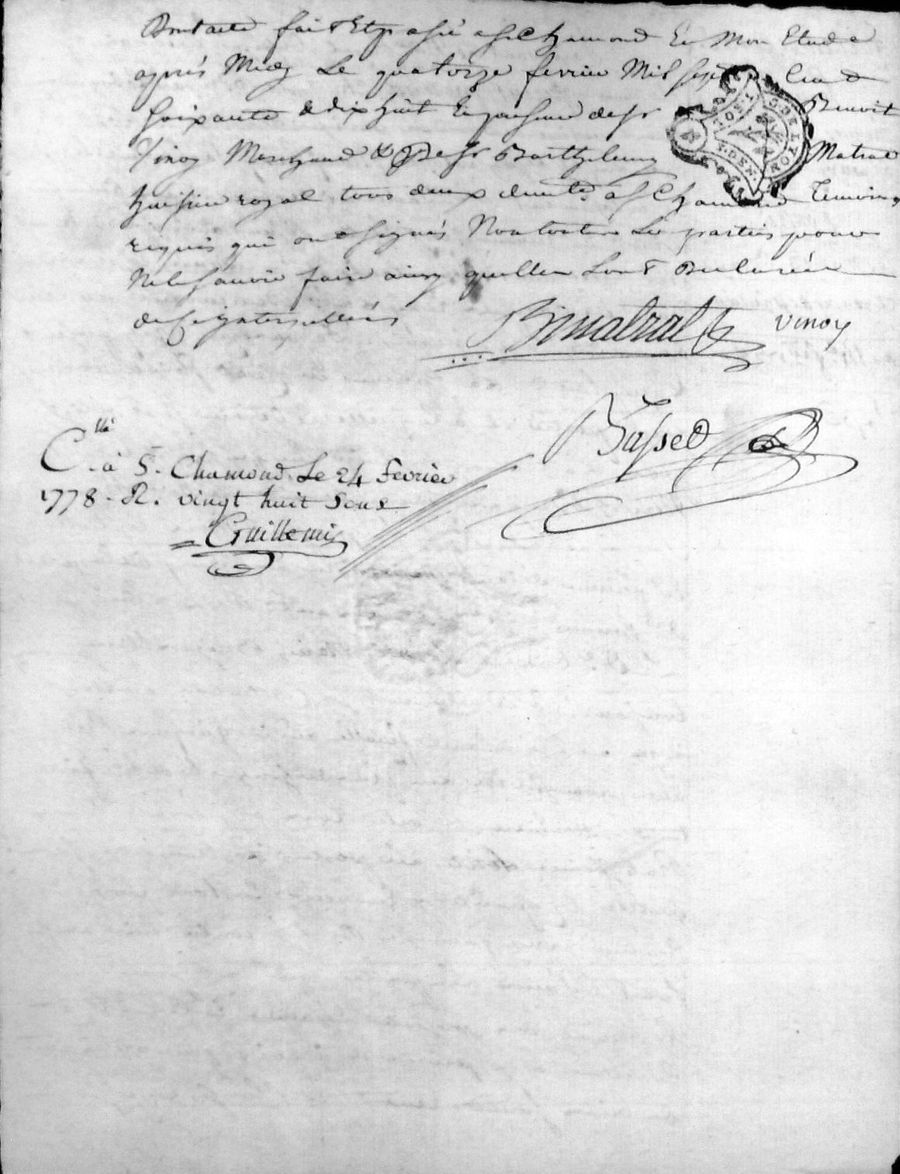 fait Et passé a St Chamond En Mon Etude
après Midy Le quatorze fevrier Mil sept Cent
soixante & dix huit En presence de sr Benoit
Vinoy Marchand & De sr Barthelemy Matrat
huissier royal, tous deux demts. a St Chamond Temoins
requis qui ont signés Non toutes Les parties pour
Ne le savoir faire ainsy quelles Lont Declarées
de Ce Interpellées
Bmatrat vinoy
Basset
Cllé à St. Chamond Le 24 fevrier
1778 - R. vingt huit Sous
Guillemin